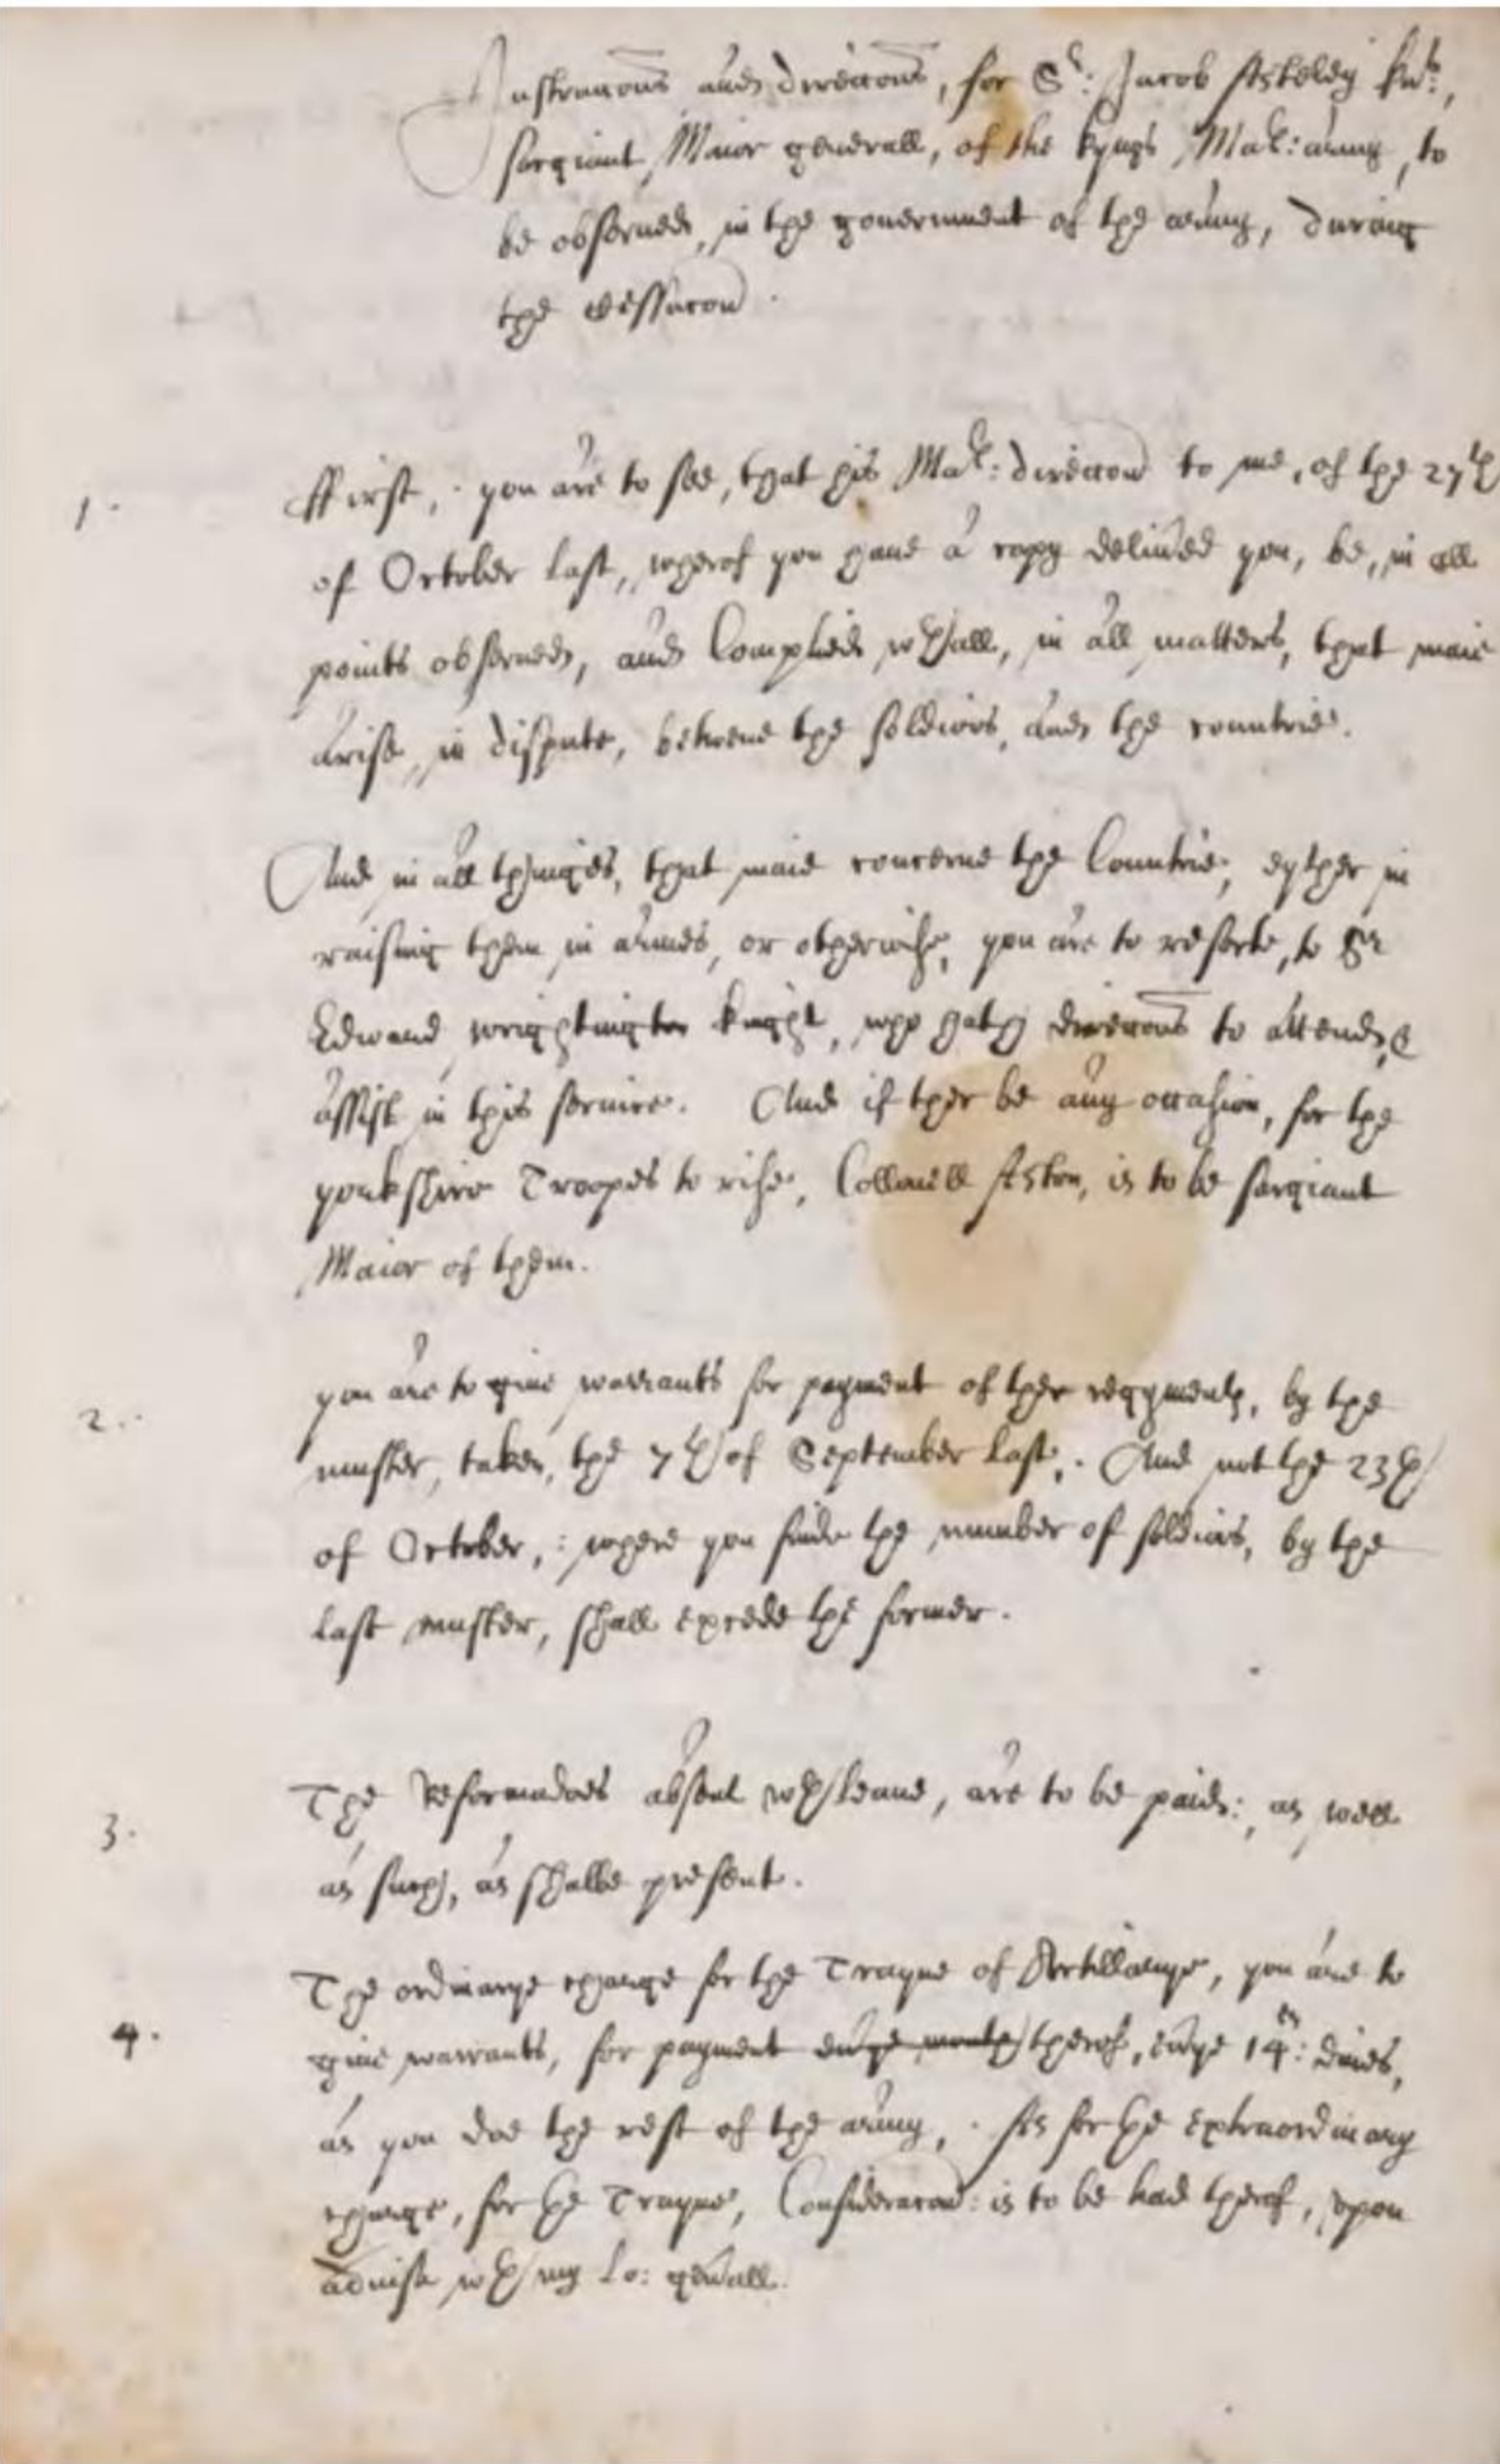 Instruccons and direccons, for Sr: Jacob Asheley knt:,
sargiant Maior generall, of the kyngs Mats: army, to
be obserued, in the gouernment of the army, during
the Cessacon.
1. ffirst, you are to see, that his Mats: direccon to me, of the 27th
of October last, wherof you haue a copy deliued you, be, in all
points obserued, and Complied wth all, in all matters, that maie
arise, in dispute, betwene the soldiors, and the countrie.
And in all thinges, that maie concerne the Countrie, eyther in
raising them in armes, or otherwise, you are to resorte, to Sr
Edward wrightington knight, who hath direccons to attend, &
assist in this seruice. And if ther be any occasion, for the
yorkshire Troopes to rise, Collonell Aston, is to be sargiant
Maior of them.
2. you are to giue warrants for payment of ther regyments, by the
muster, taken, the 7th of September last,. And not the 23th
of October,: where you finde the number of soldiors, by the
last muster, shall excede the former.
3. The Reformadoes absent wth leaue, are to be paid:, as well
as such, as shalbe present.
4. The ordinarye charge for the Trayne of Artillarye, you are to
giue warrants, for payment eu'ye month therof, eu'ye 14en: daies,
as you doe the rest of the army,. As for the extraordinary
charge, for the Trayne, Consideracon: is to be had therof, vpon
aduise wth my Lo: gen'all.